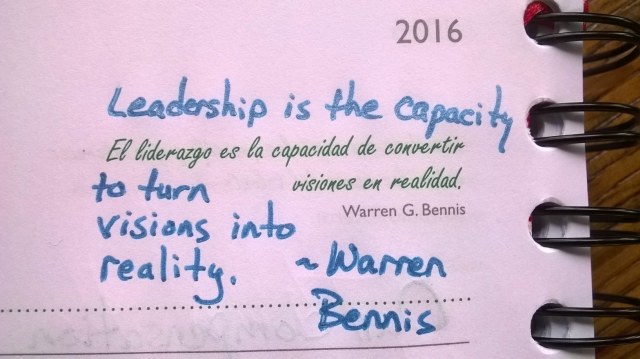 2016
Leadership is the capacity
El liderazgo es la capacidad de convertir
visiones en realidad.
Warren G. Bennis
to turn
visions into
reality. ~ Warren
Bennis